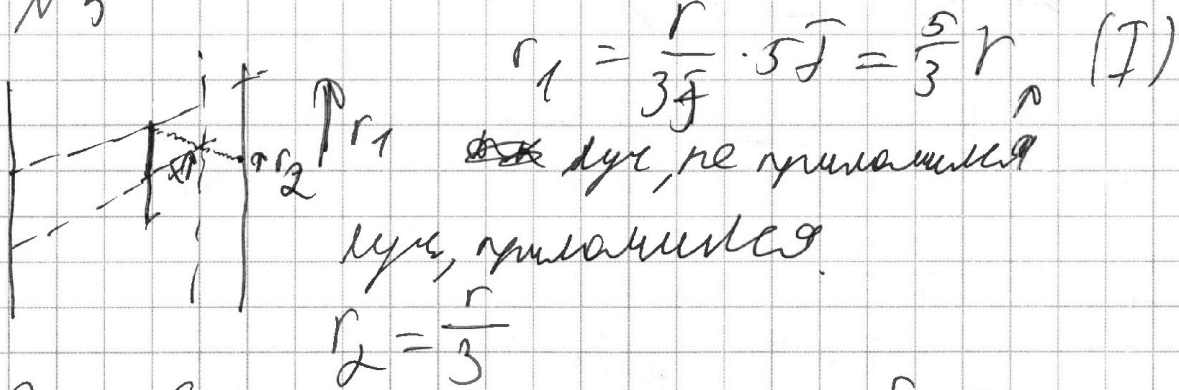 N 3
r₁ = r/3F · 5F = 5/3 r (I)
r₁
r₂
луч, не приломился
луч, приломился.
r₂ = r/3